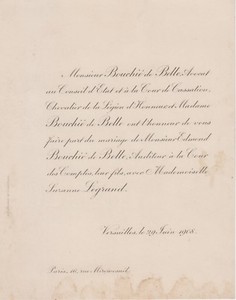 Monsieur Bouchié de Belle, Avocat
au Conseil d'Etat et à la Cour de Cassation,
Chevalier de la Légion d'Honneur et Madame
Bouchié de Belle ont l'honneur de vous
faire part du mariage de Monsieur Edmond
Bouchié de Belle, Auditeur à la Cour
des Comptes, leur fils, avec Mademoiselle
Suzanne Legrand.
Versailles, le 29 Juin 1908.
Paris, 16, rue Miromesnil.